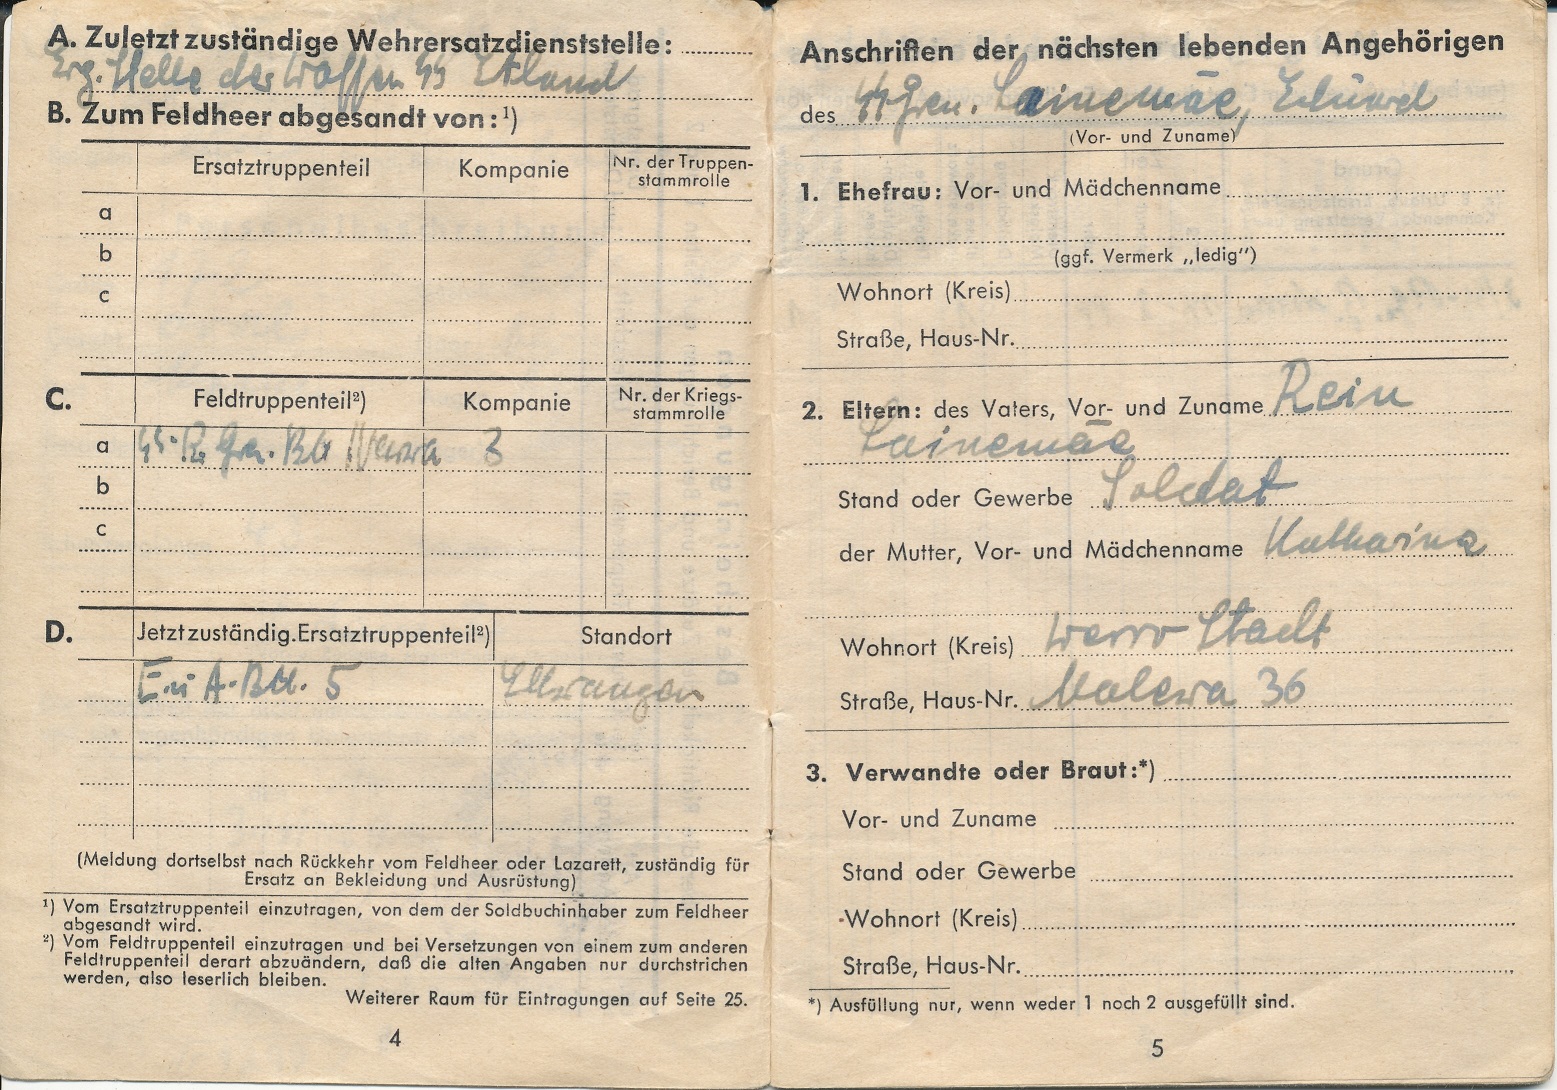 A. Zuletzt zuständige Wehrersatzdienststelle:
Erg. Stelle der Waffen SS Estland
B. Zum Feldheer abgesandt von: ¹)
Ersatztruppenteil Kompanie Nr. der Truppen-
stammrolle
a
b
c
C. Feldtruppenteil²) Kompanie Nr. der Kriegs-
stammrolle
a SS-Pz. Gren. Btl Narwa 3
b
c
D. Jetzt zuständig. Ersatztruppenteil²) Standort
E. u A. Btl. 5 Ellwangen
(Meldung dortselbst nach Rückkehr vom Feldheer oder Lazarett, zuständig für
Ersatz an Bekleidung und Ausrüstung)
¹) Vom Ersatztruppenteil einzutragen, von dem der Soldbuchinhaber zum Feldheer
abgesandt wird.
²) Vom Feldtruppenteil einzutragen und bei Versetzungen von einem zum anderen
Feldtruppenteil derart abzuändern, daß die alten Angaben nur durchstrichen
werden, also leserlich bleiben.
Weiterer Raum für Eintragungen auf Seite 25.
4
Anschriften der nächsten lebenden Angehörigen
des SS Gren. Lainemäe,
(Vor- und Zuname)
1. Ehefrau: Vor- und Mädchenname
(ggf. Vermerk „ledig")
Wohnort (Kreis)
Straße, Haus-Nr.
2. Eltern: des Vaters, Vor- und Zuname Rein
Lainemäe
Stand oder Gewerbe Soldat
der Mutter, Vor- und Mädchenname Katharina
Wohnort (Kreis) Werro Stadt
Straße, Haus-Nr. Malewa 36
3. Verwandte oder Braut:*)
Vor- und Zuname
Stand oder Gewerbe
Wohnort (Kreis)
Straße, Haus-Nr.
*) Ausfüllung nur, wenn weder 1 noch 2 ausgefüllt sind.
5